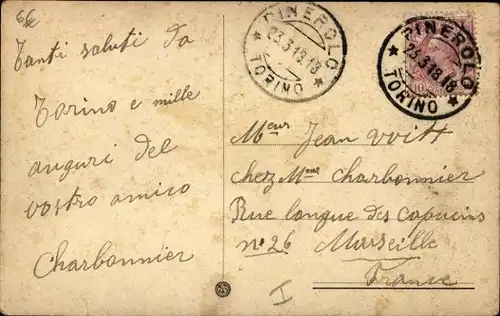 66
Tanti saluti da
Torino e mille
auguri del
vostro amico
Charbonnier
PINEROLO
23.3.18.18
★ TORINO ★
PINEROLO
23.3.18.18
★ TORINO ★
Meur Jean Voitt
chez Mme Charbonnier
Rue longue des Capucins
n° 26 Marseille
France
I